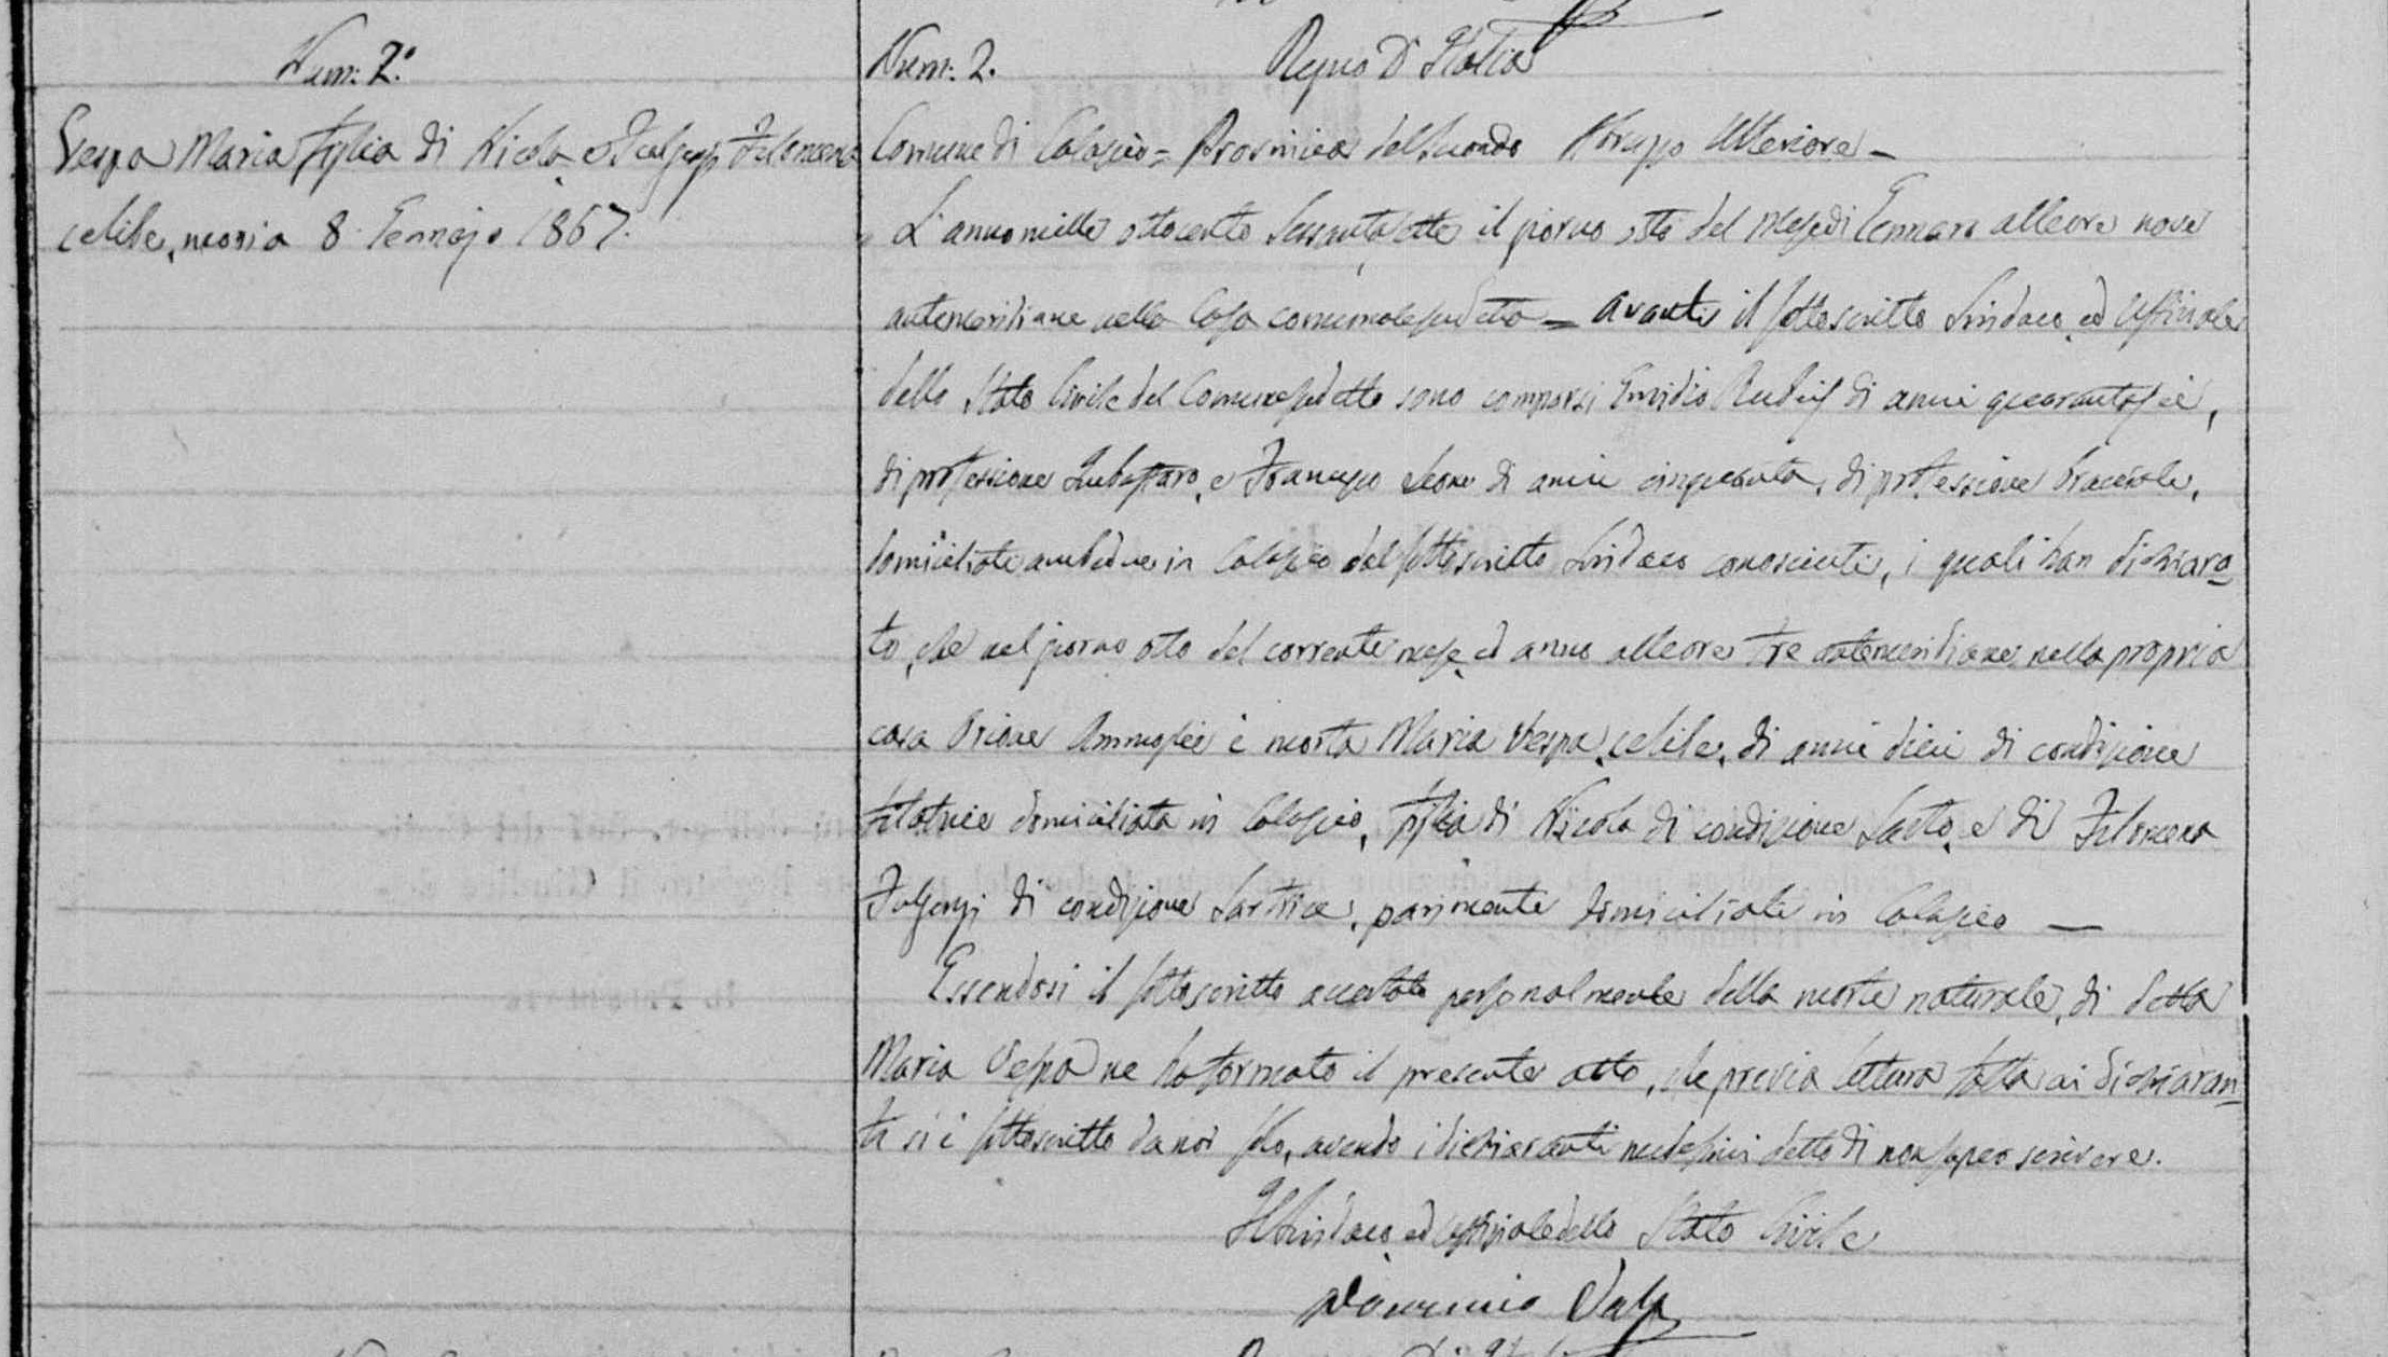 Num: 2.°
Vespa Maria figlia di Nicola e Fulgenzj Filomena
celibe, moria 8 Gennajo 1867.
Num: 2. Regno D'Italia
Comune di Calascio = Provincia del Secondo Abruzzo Ulteriore –
L'anno mille ottocento sessantasette il giorno otto del mese di Gennaro alle ore nove
antemeridiane nella Casa comunale sudetta = avanti il sottoscritto Sindaco, ed Uffiziale
dello Stato Civile del Comune sudetto sono comparsi Emidio di anni quarantasei,
di professione e Francesco Leone di anni cinquanta, di professione bracciale,
domiciliati ambedue in Calascio dal sottoscritto Sindaco conosciuti, i quali han dichiara
to, che nel giorno otto del corrente mese, ed anno alle ore tre antemeridiane nella propria
casa è morta Maria Vespa, celibe, di anni dieci di condizione
filatrice domiciliata in Calascio, figlia di Nicola di condizione Sarto, e di Filomena
Fulgenzj di condizione Sartrice, parimente domiciliati in Calascio —
Essendosi il sottoscritto accertato personalmente della morte naturale, di detta
Maria Vespa ne ha formato il presente atto, che previa lettura fatta ai dichiaran
ti si è sottoscritto da noi solo, avendo i dichiaranti medesimi detto di non saper scrivere.
Il Sindaco, ed Uffiziale dello Stato Civile